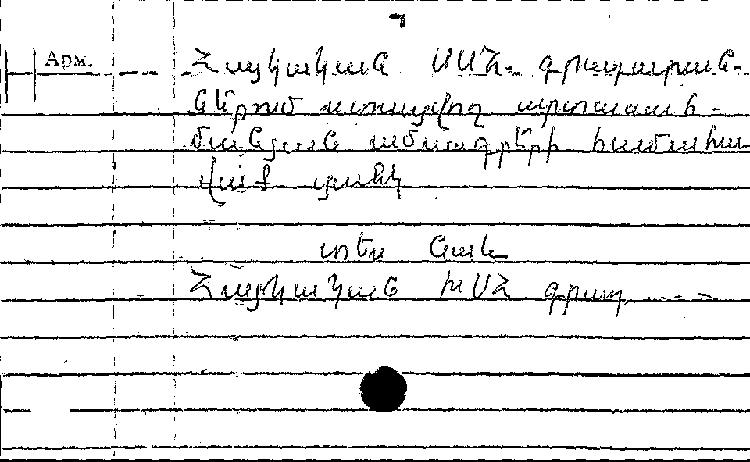 Арм.
Հայկական ՍՍՀ գրադարան-
ներում ստացվող արտասահ-
մանյան ամսագրերի համահա
վաք ցանկ
տես նաև
Հայկական ԽՍՀ գրադ. ---